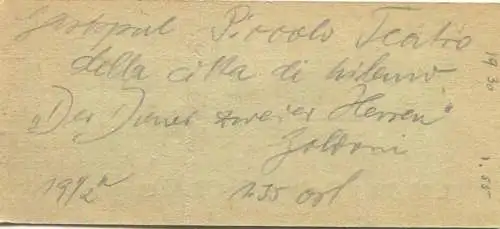 Gastspiel Piccolo Teatro
della citta di milano
"Der Diener zweier Herren"
Goldoni
19 30
1.55